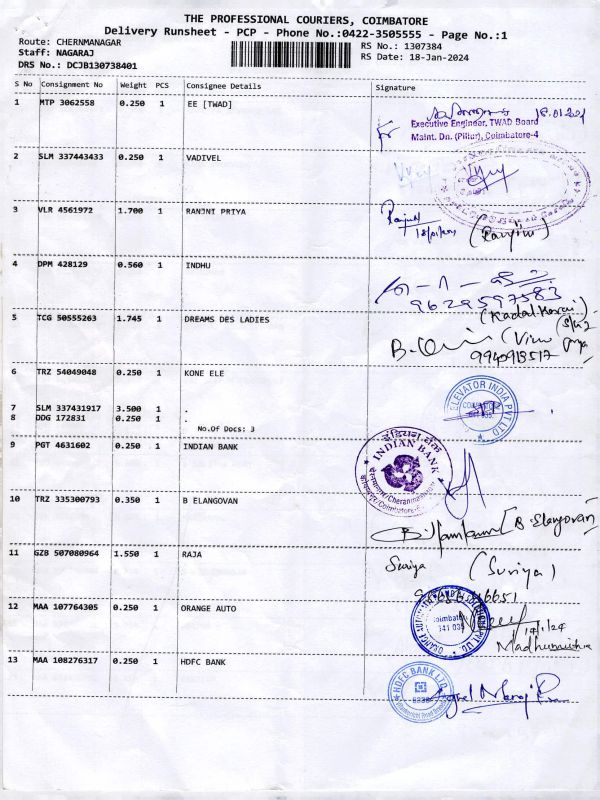 THE PROFESSIONAL COURIERS, COIMBATORE
Delivery Runsheet - PCP - Phone No.:0422-3505555 - Page No.:1
Route: CHERNMANAGAR
RS No.: 1307384
Staff: NAGARAJ
RS Date: 18-Jan-2024
DRS No.: DCJB130738401
S No Consignment No Weight PCS Consignee Details Signature
1 MTP 3062558 0.250 1 EE [TWAD]
18.01.2024
Executive Engineer, TWAD Board
Maint. Dn. (Pillur), Coimbatore-4
2 SLM 337443433 0.250 1 VADIVEL
3 VLR 4561972 1.700 1 RANJNI PRIYA
(Ranjini)
4 DPM 428129 0.560 1 INDHU
9629597583
5 TCG 50555263 1.745 1 DREAMS DES LADIES
6 TRZ 54049048 0.250 1 KONE ELE
ELEVATOR INDIA PVT LTD
7 SLM 337431917 3.500 1 .
8 DDG 172831 0.250 1 .
No.Of Docs: 3
9 PGT 4631602 0.250 1 INDIAN BANK
इंडियन बैंक
INDIAN BANK
10 TRZ 335300793 0.350 1 B ELANGOVAN
B. Elangovan
11 GZB 507080964 1.550 1 RAJA
Suriya (Suriya)
12 MAA 107764305 0.250 1 ORANGE AUTO
Coimbatore
641 035
Madhumitha
13 MAA 108276317 0.250 1 HDFC BANK
HDFC BANK LTD